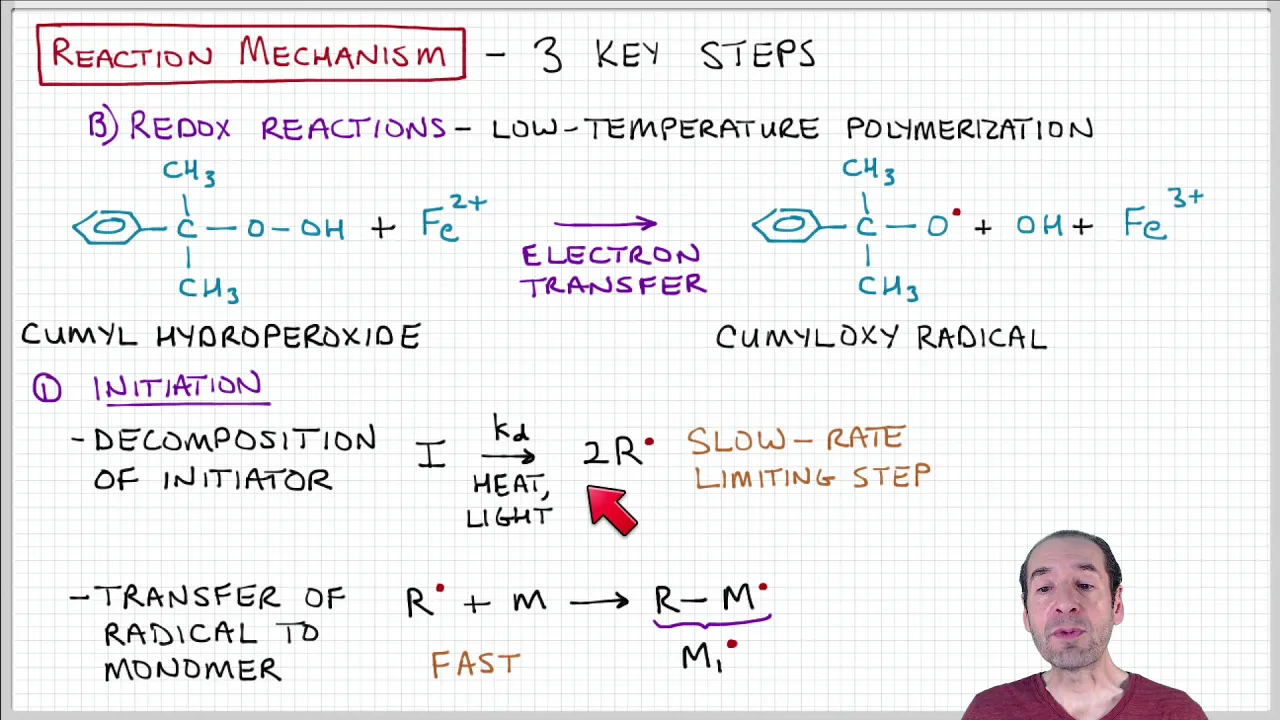 REACTION MECHANISM - 3 KEY STEPS
B) REDOX REACTIONS - LOW-TEMPERATURE POLYMERIZATION
CH3 CH3
C - O - OH + Fe2+ → C - O• + OH + Fe3+
ELECTRON
TRANSFER
CH3 CH3
CUMYL HYDROPEROXIDE CUMYLOXY RADICAL
① INITIATION
- DECOMPOSITION
OF INITIATOR
kd
I → 2R•
HEAT,
LIGHT
SLOW - RATE
LIMITING STEP
- TRANSFER OF
RADICAL TO
MONOMER
R• + M → R - M•
FAST
M1•